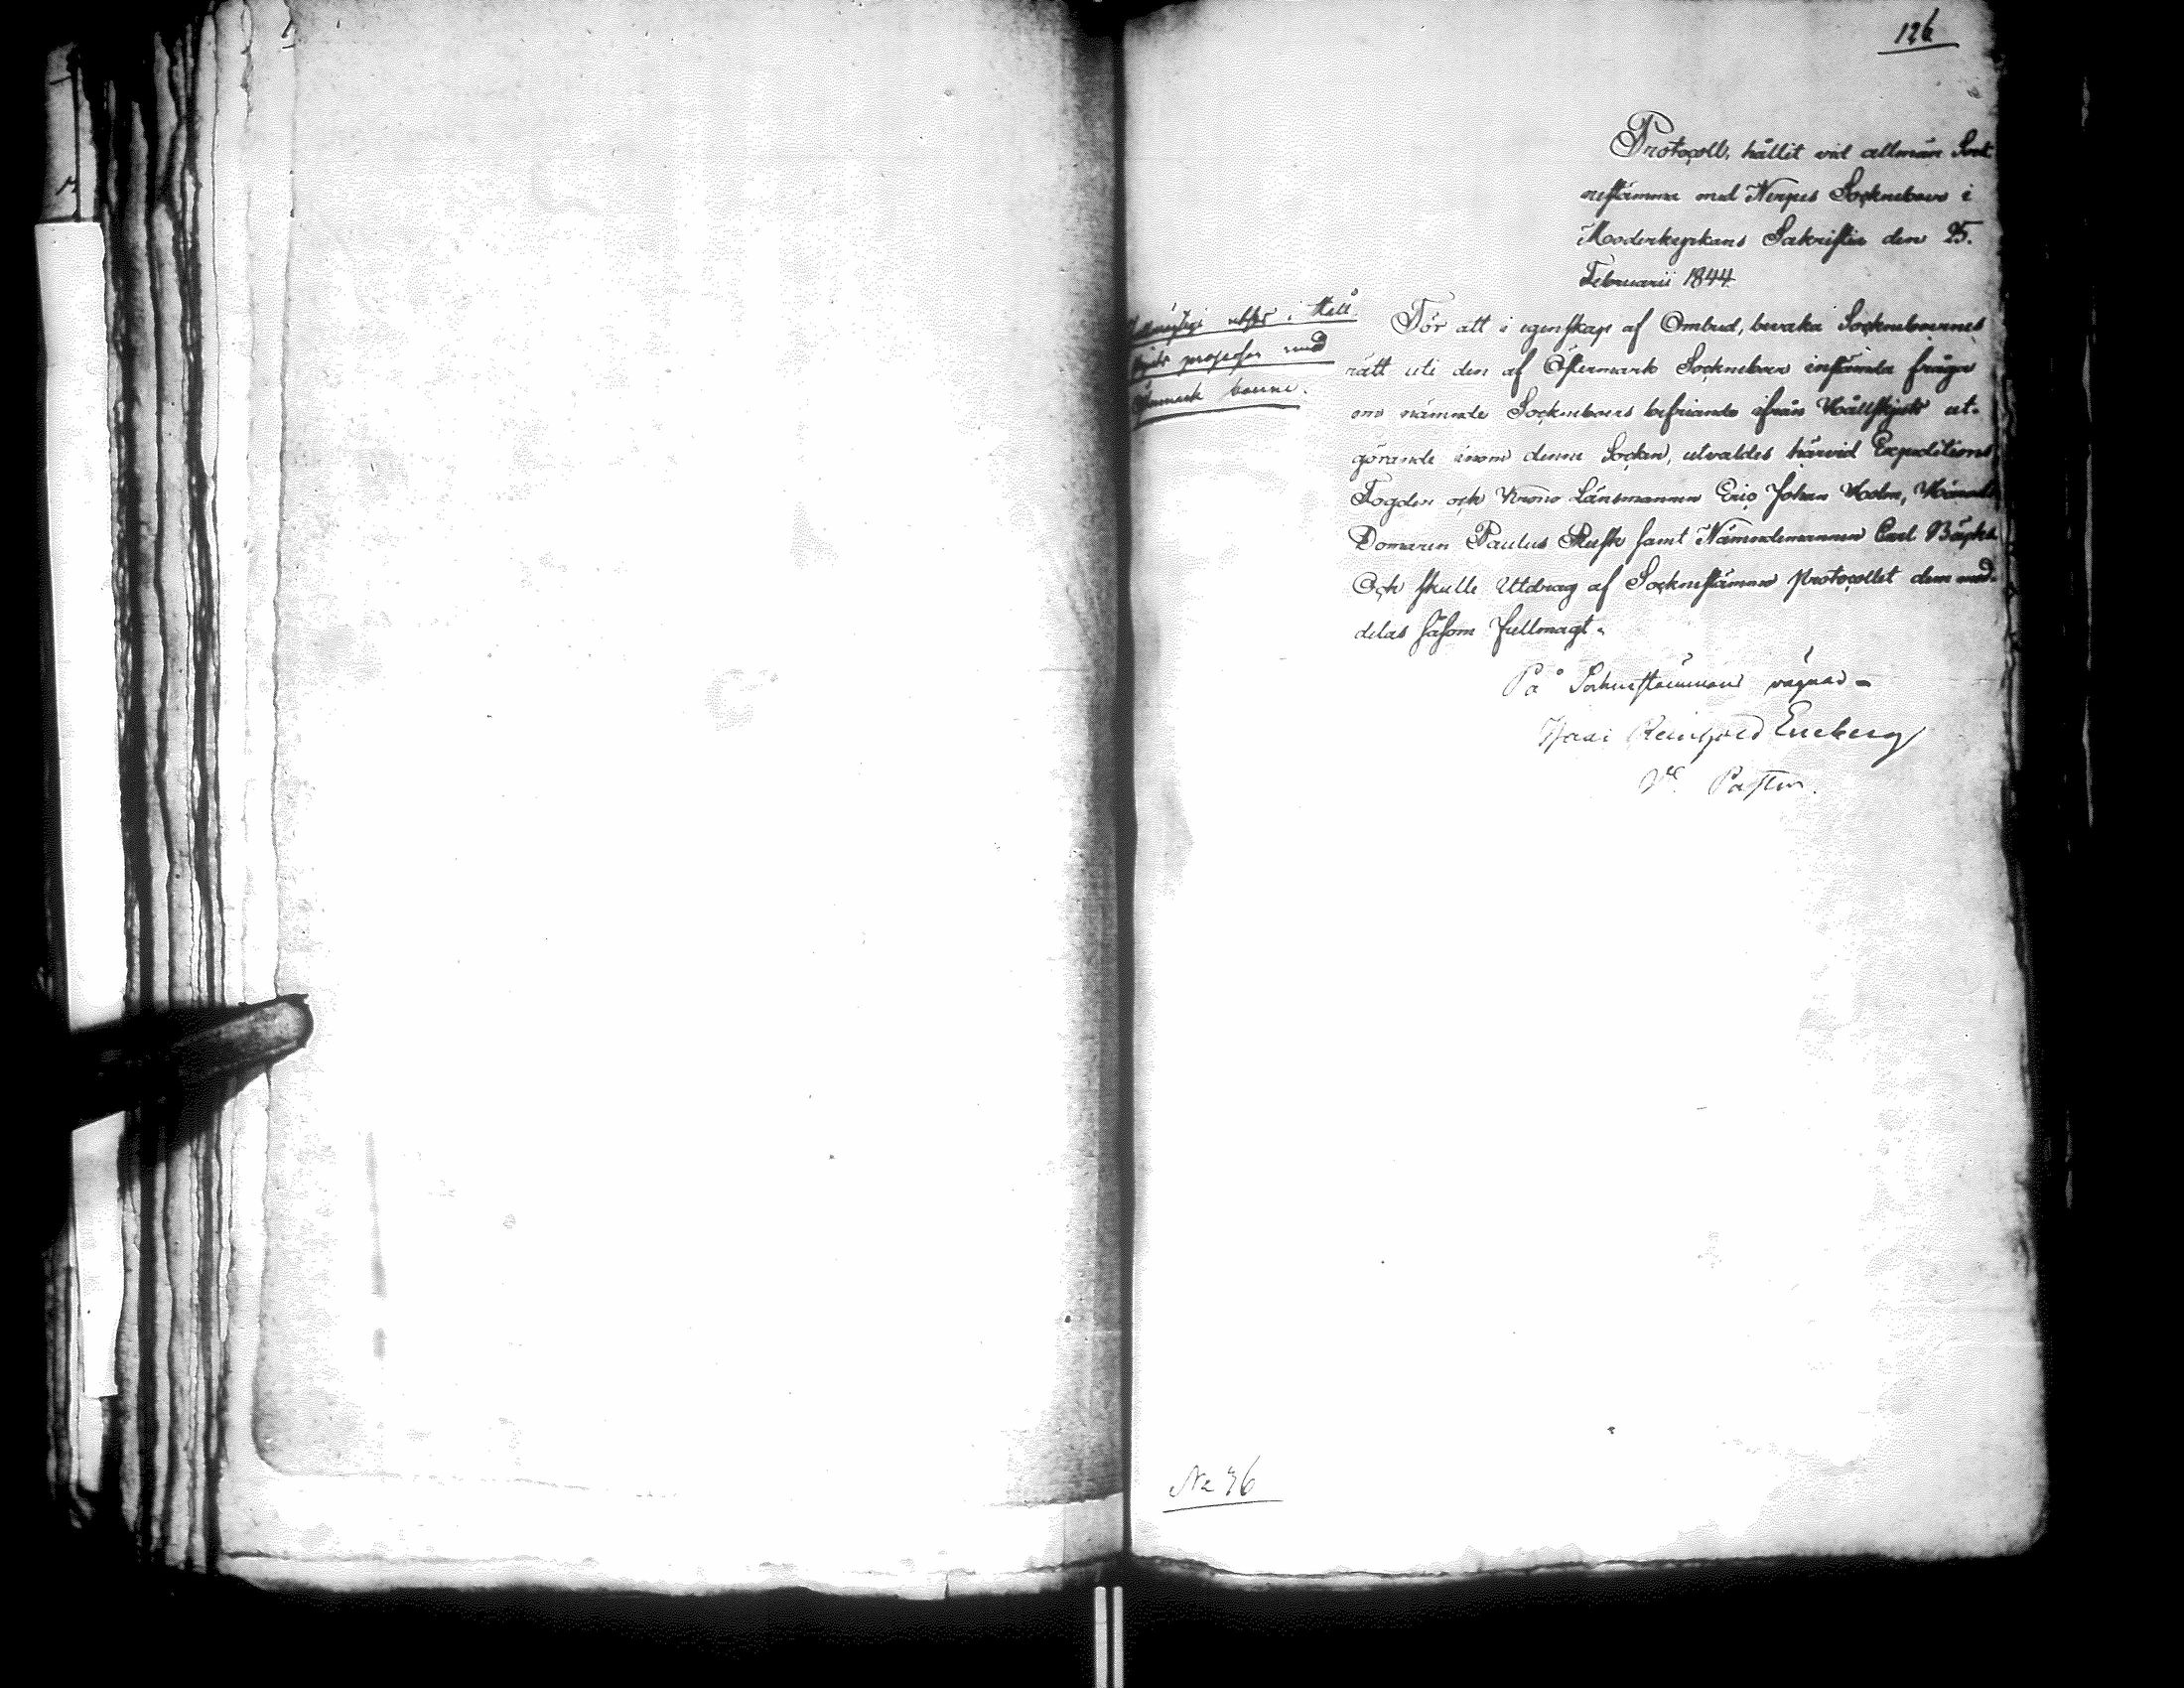 126
Protocoll, hållit vid allmän Sock
nestämma med Nerpes Sockneboer i
Moderkyrkans Sakristia den 25.
Februarii 1844.
i Håll
skjuts processen med
boerne.
För att i egenskap af Ombud, bevaka Sockneboernes
rätt uti den af Östermark Sockneboer instämda fråga
om nämnde Sockneboers befriande ifrån Hållskjuts ut-
görande inom denne Socken, utvaldes härvid Expeditions
Fogden och Krono Länsmannen Eric Johan Holm, Härads
Domaren Paulus Rusk samt Nämndemannen Carl Bäcks
Och skulle Utdrag af Socknestämmo Protocollet dem med-
delas såsom fullmagt.
På Sockenstämmans vägnar
Isaac Reinhold Eneberg
Vc Pastor.
No 36